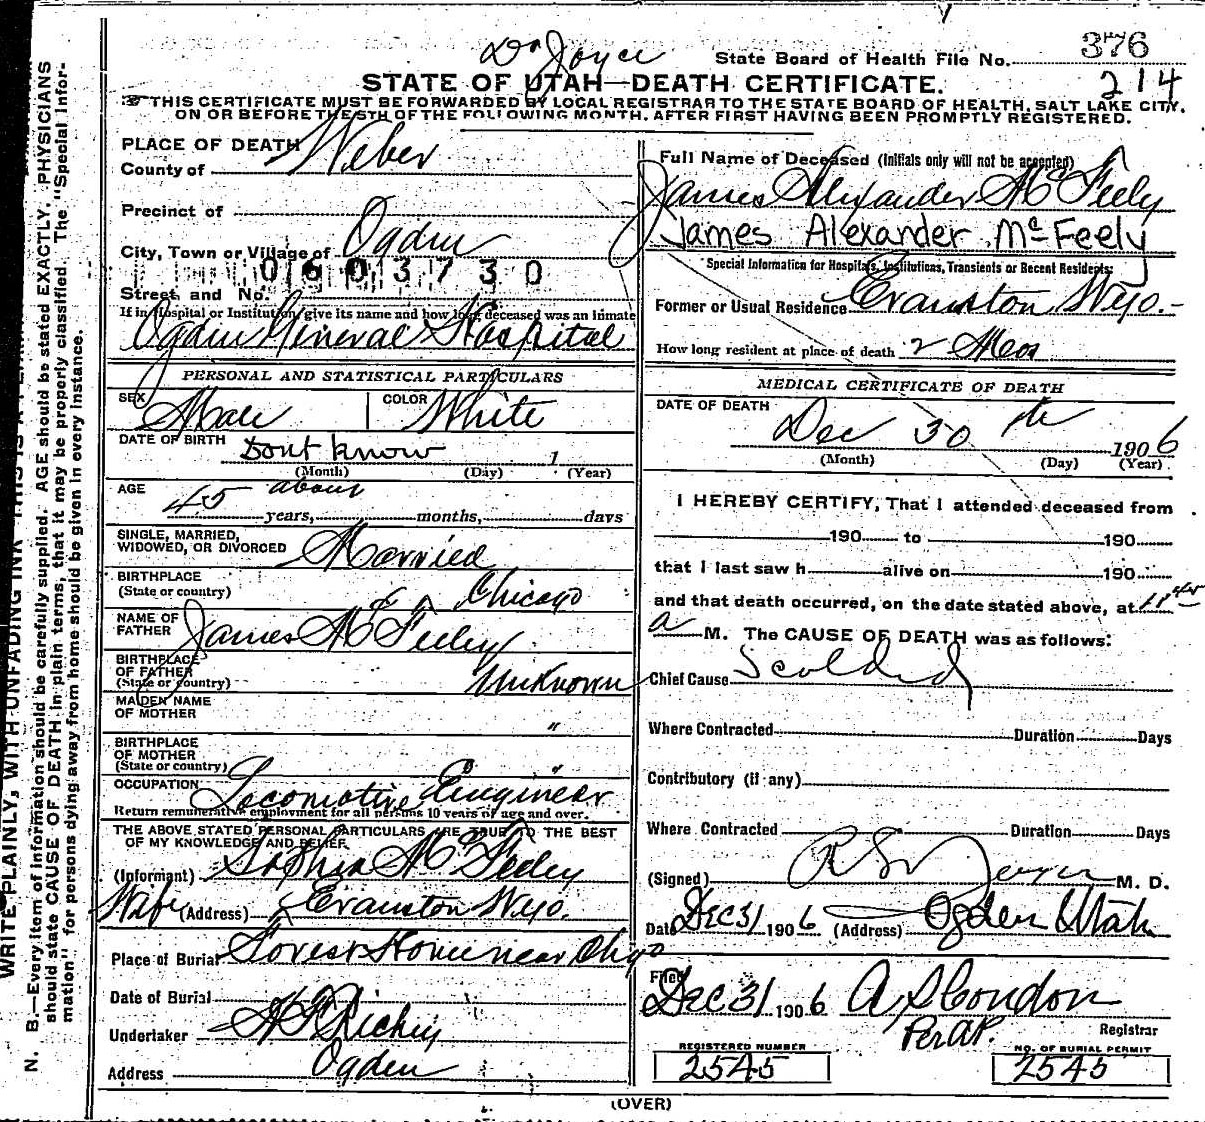 Dr Joyce
State Board of Health File No. 376
214
STATE OF UTAH—DEATH CERTIFICATE.
THIS CERTIFICATE MUST BE FORWARDED BY LOCAL REGISTRAR TO THE STATE BOARD OF HEALTH, SALT LAKE CITY,
ON OR BEFORE THE 5TH OF THE FOLLOWING MONTH, AFTER FIRST HAVING BEEN PROMPTLY REGISTERED.
PLACE OF DEATH
County of Weber
Precinct of
City, Town or Village of Ogden
0603730
Street and No.
If in Hospital or Institution, give its name and how long deceased was an inmate
Ogden General Hospital
PERSONAL AND STATISTICAL PARTICULARS
SEX Male COLOR White
DATE OF BIRTH Dont know 1
(Month) (Day) (Year)
AGE about
45 years, months, days
SINGLE, MARRIED,
WIDOWED, OR DIVORCED Married
BIRTHPLACE
(State or country) Chicago
NAME OF
FATHER James McFeeley
BIRTHPLACE
OF FATHER
(State or country) Unknown
MAIDEN NAME
OF MOTHER "
BIRTHPLACE
OF MOTHER
(State or country) "
OCCUPATION Locomotive Engineer
Return remunerative employment for all persons 10 years of age and over.
THE ABOVE STATED PERSONAL PARTICULARS ARE TRUE TO THE BEST
OF MY KNOWLEDGE AND BELIEF.
(Informant) Sophia McFeeley
Wife (Address) Evanston Wyo.
Place of Burial Forest Home near Chgo
Date of Burial
Undertaker Richey
Address Ogden
Full Name of Deceased (Initials only will not be accepted)
James Alexander McFeely
James Alexander McFeely
Special Information for Hospitals, Institutions, Transients or Recent Residents:
Former or Usual Residence Evanston Wyo.-
How long resident at place of death 2 Mos
MEDICAL CERTIFICATE OF DEATH
DATE OF DEATH
Dec 30th 1906
(Month) (Day) (Year)
I HEREBY CERTIFY, That I attended deceased from
190 to 190
that I last saw h alive on 190
and that death occurred, on the date stated above, at 11 45
a M. The CAUSE OF DEATH was as follows:
Chief Cause Scolded
Where Contracted Duration Days
Contributory (if any)
Where Contracted Duration Days
(Signed) Joyce M. D.
Date Dec 31 1906 (Address) Ogden Utah
Filed
Dec 31 1906 A S Condon
Per AP. Registrar
REGISTERED NUMBER
2545
NO. OF BURIAL PERMIT
2545
(OVER)
WRITE PLAINLY, WITH UNFADING INK THIS IS A
N. B.—Every item of information should be carefully supplied. AGE should be stated EXACTLY. PHYSICIANS
should state CAUSE OF DEATH in plain terms, that it may be properly classified. The "Special Infor-
mation" for persons dying away from home should be given in every instance.